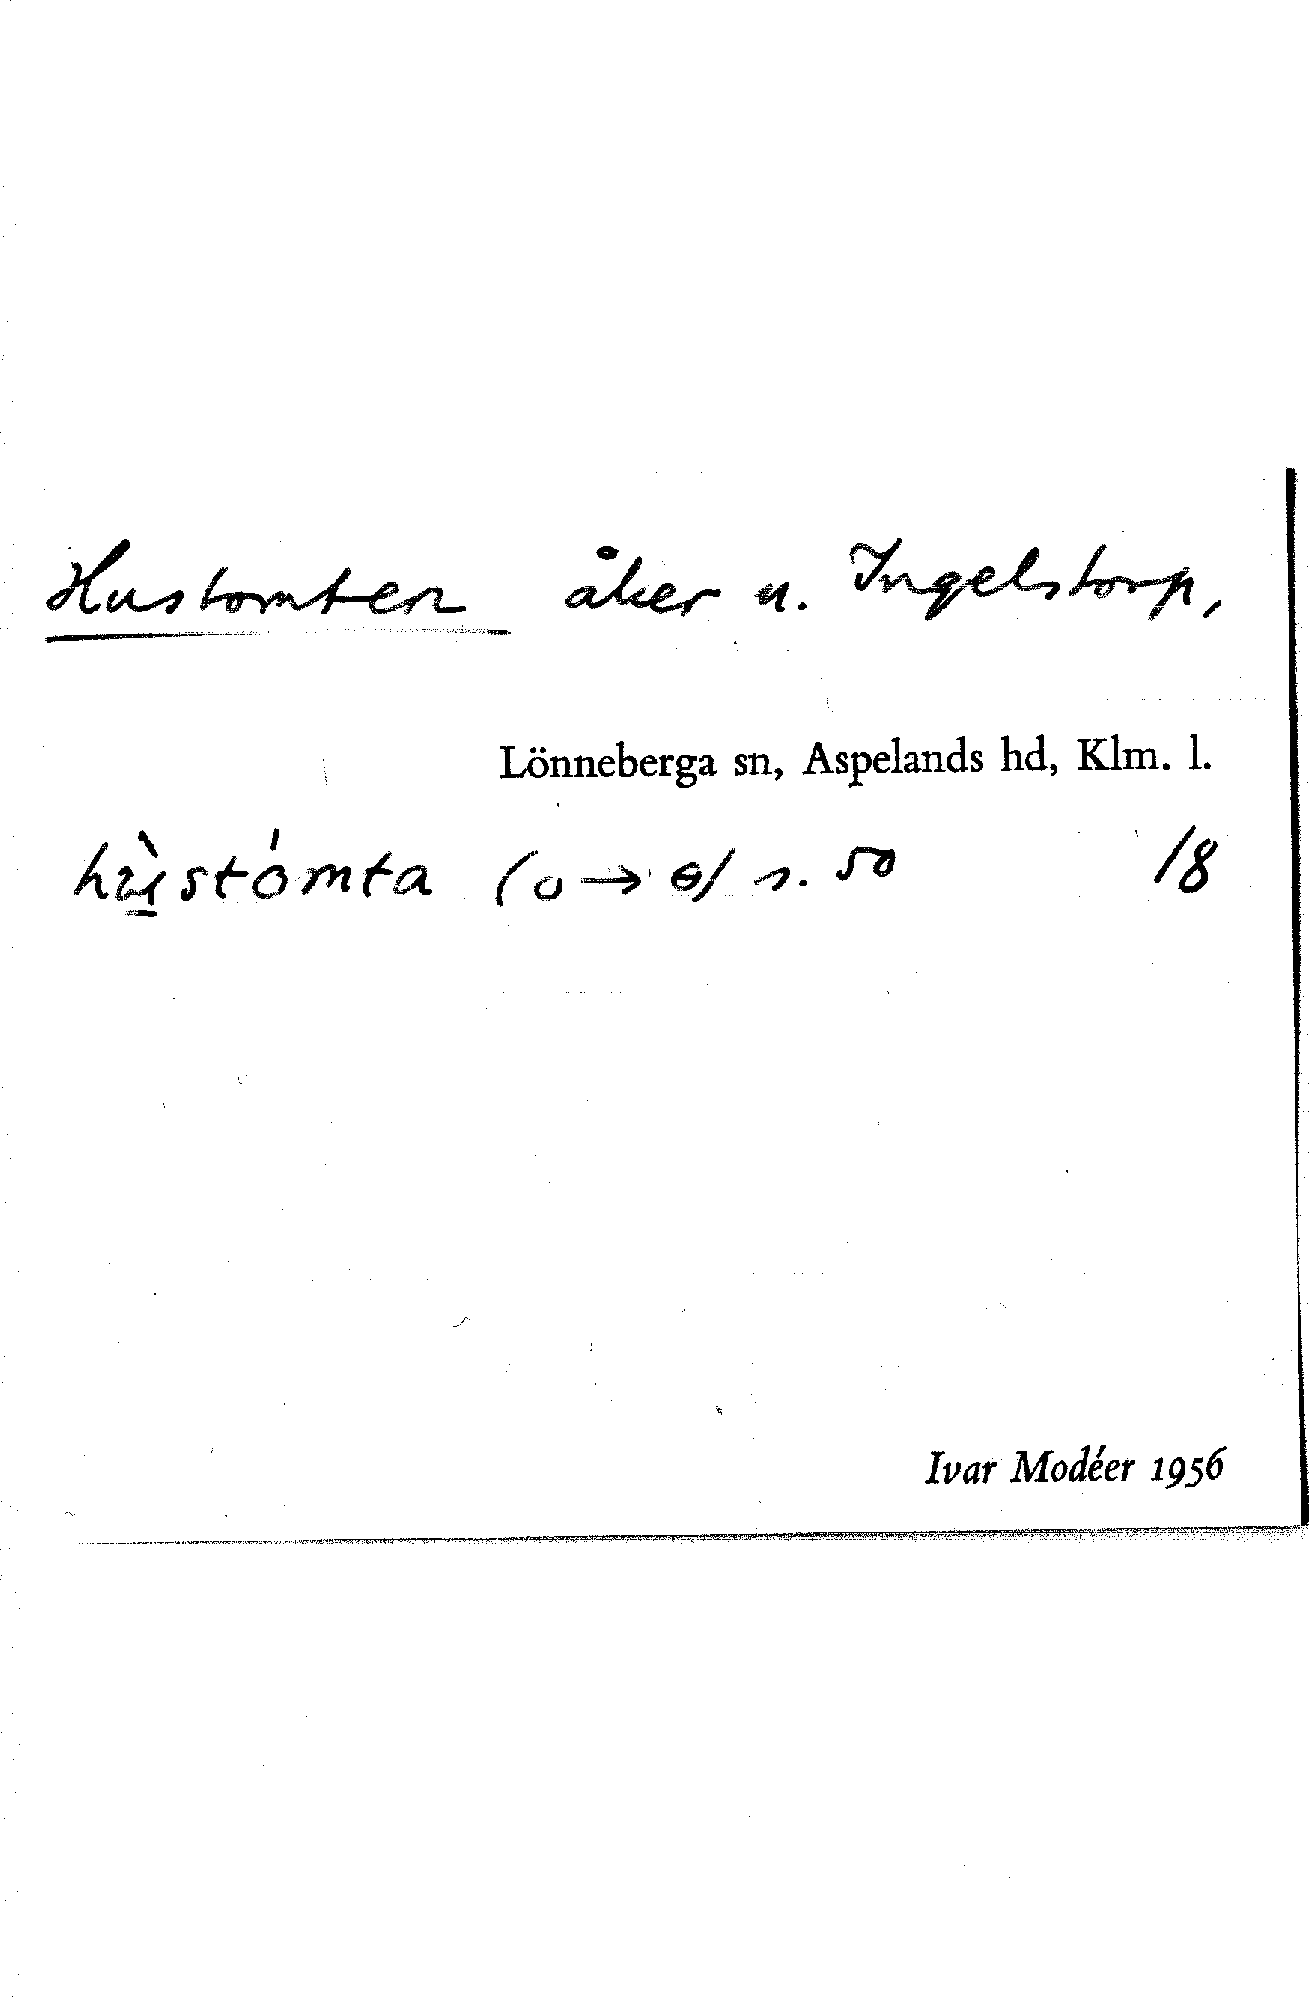 Hustomten åker u. Ingelstorp,
Lönneberga sn, Aspelands hd, Klm. l.
hùstómta (o → ɵ) s. 50 /8
Ivar Modéer 1956